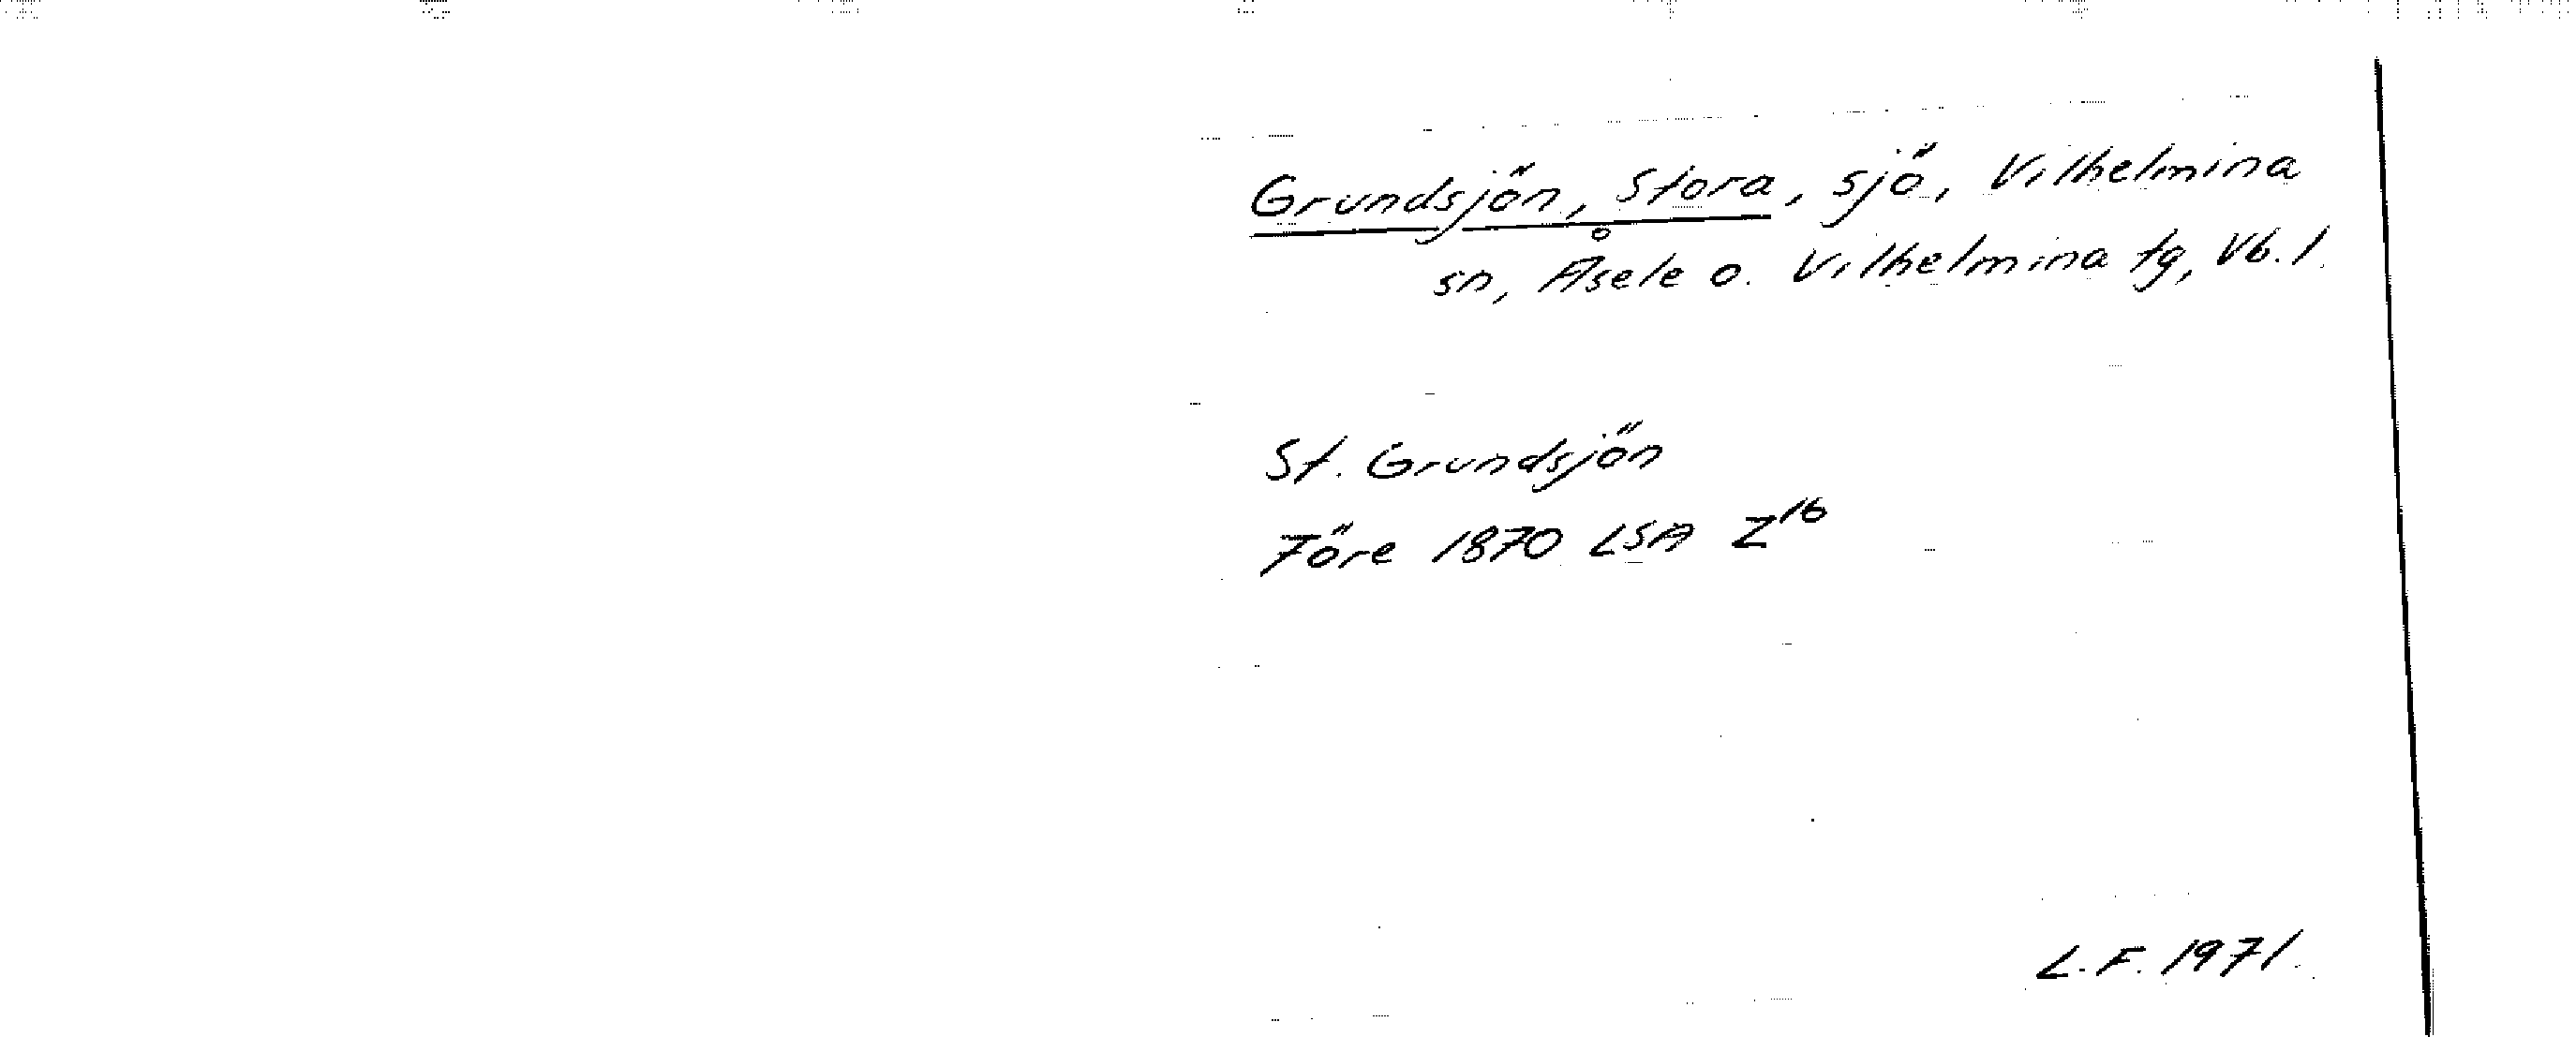 Grundsjön, Stora, sjö, Vilhelmina
sn, Åsele o. Vilhelmina tg, Vb. l.
St. Grundsjön
Före 1870 LSA Z¹⁶
L. F. 1971.